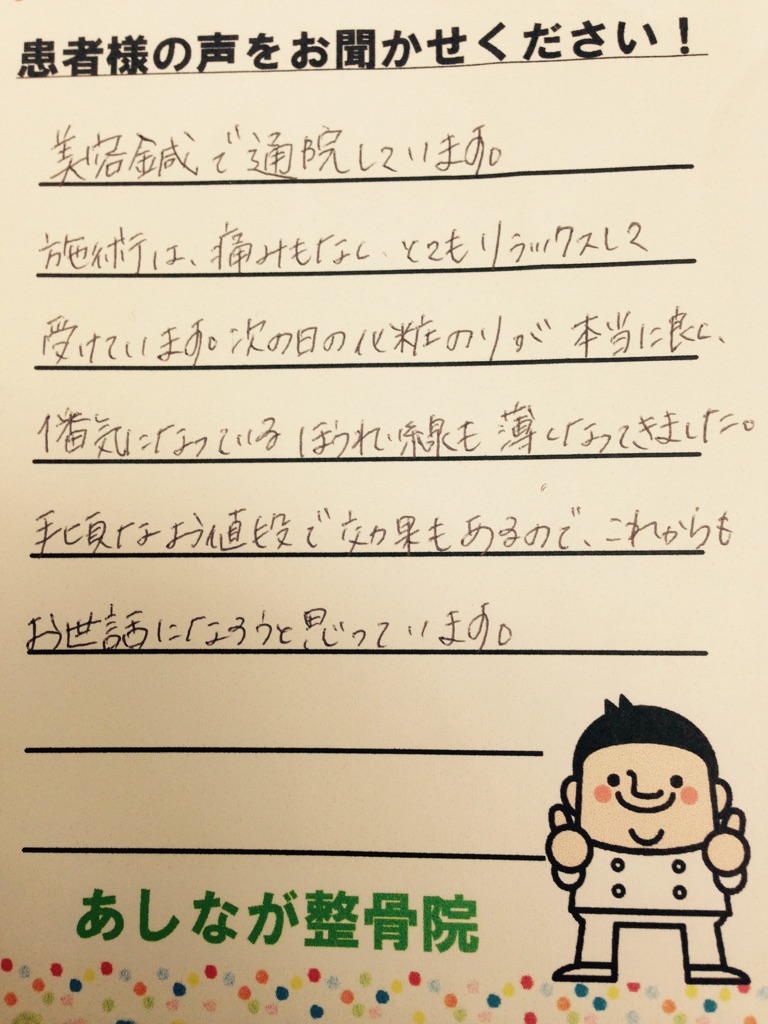 患者様の声をお聞かせください！
美容鍼で通院しています。
施術は、痛みもなく、とてもリラックスして
受けています。次の日の化粧のりが本当に良く、
1番気になっているほうれい線も薄くなってきました。
手頃なお値段で効果もあるので、これからも
お世話になろうと思っています。
あしなが整骨院